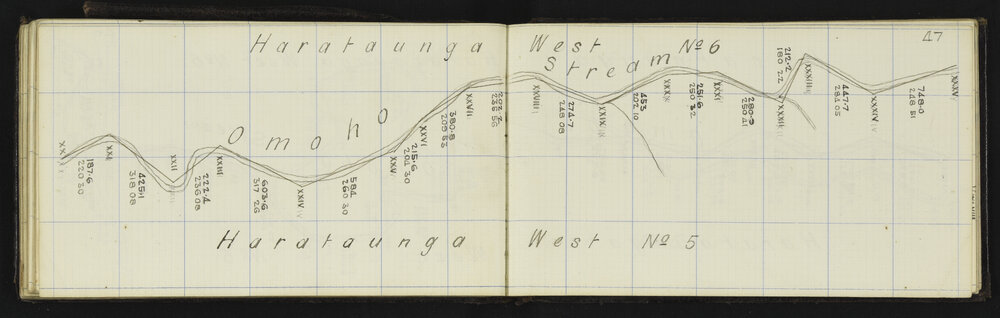 47
Harataunga West No 6
Omoho Stream
XX
187.6
220 30
XXI
425.1
318 08
XXII
222.4
236 08
XXIII
603.6
317 26
XXIV
584
260 30
XXV
215.6
204 30
XXVI
380.8
XXVII
XXVIII
274.7
248 08
XXIX
453
202 10
XXX
251.6
250 32
XXXI
280.9
250 41
XXXII
212.2
180 22
XXXIII
447.7
284 05
XXXIV
748.0
248 51
XXXV
Harataunga West No 5